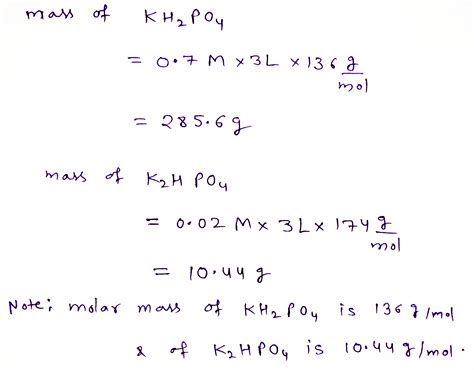 mass of KH₂PO₄
= 0.7 M × 3L × 136 g/mol
= 285.6 g
mass of K₂HPO₄
= 0.02 M × 3L × 174 g/mol
= 10.44 g
Note: molar mass of KH₂PO₄ is 136 g/mol
& of K₂HPO₄ is 10.44 g/mol.